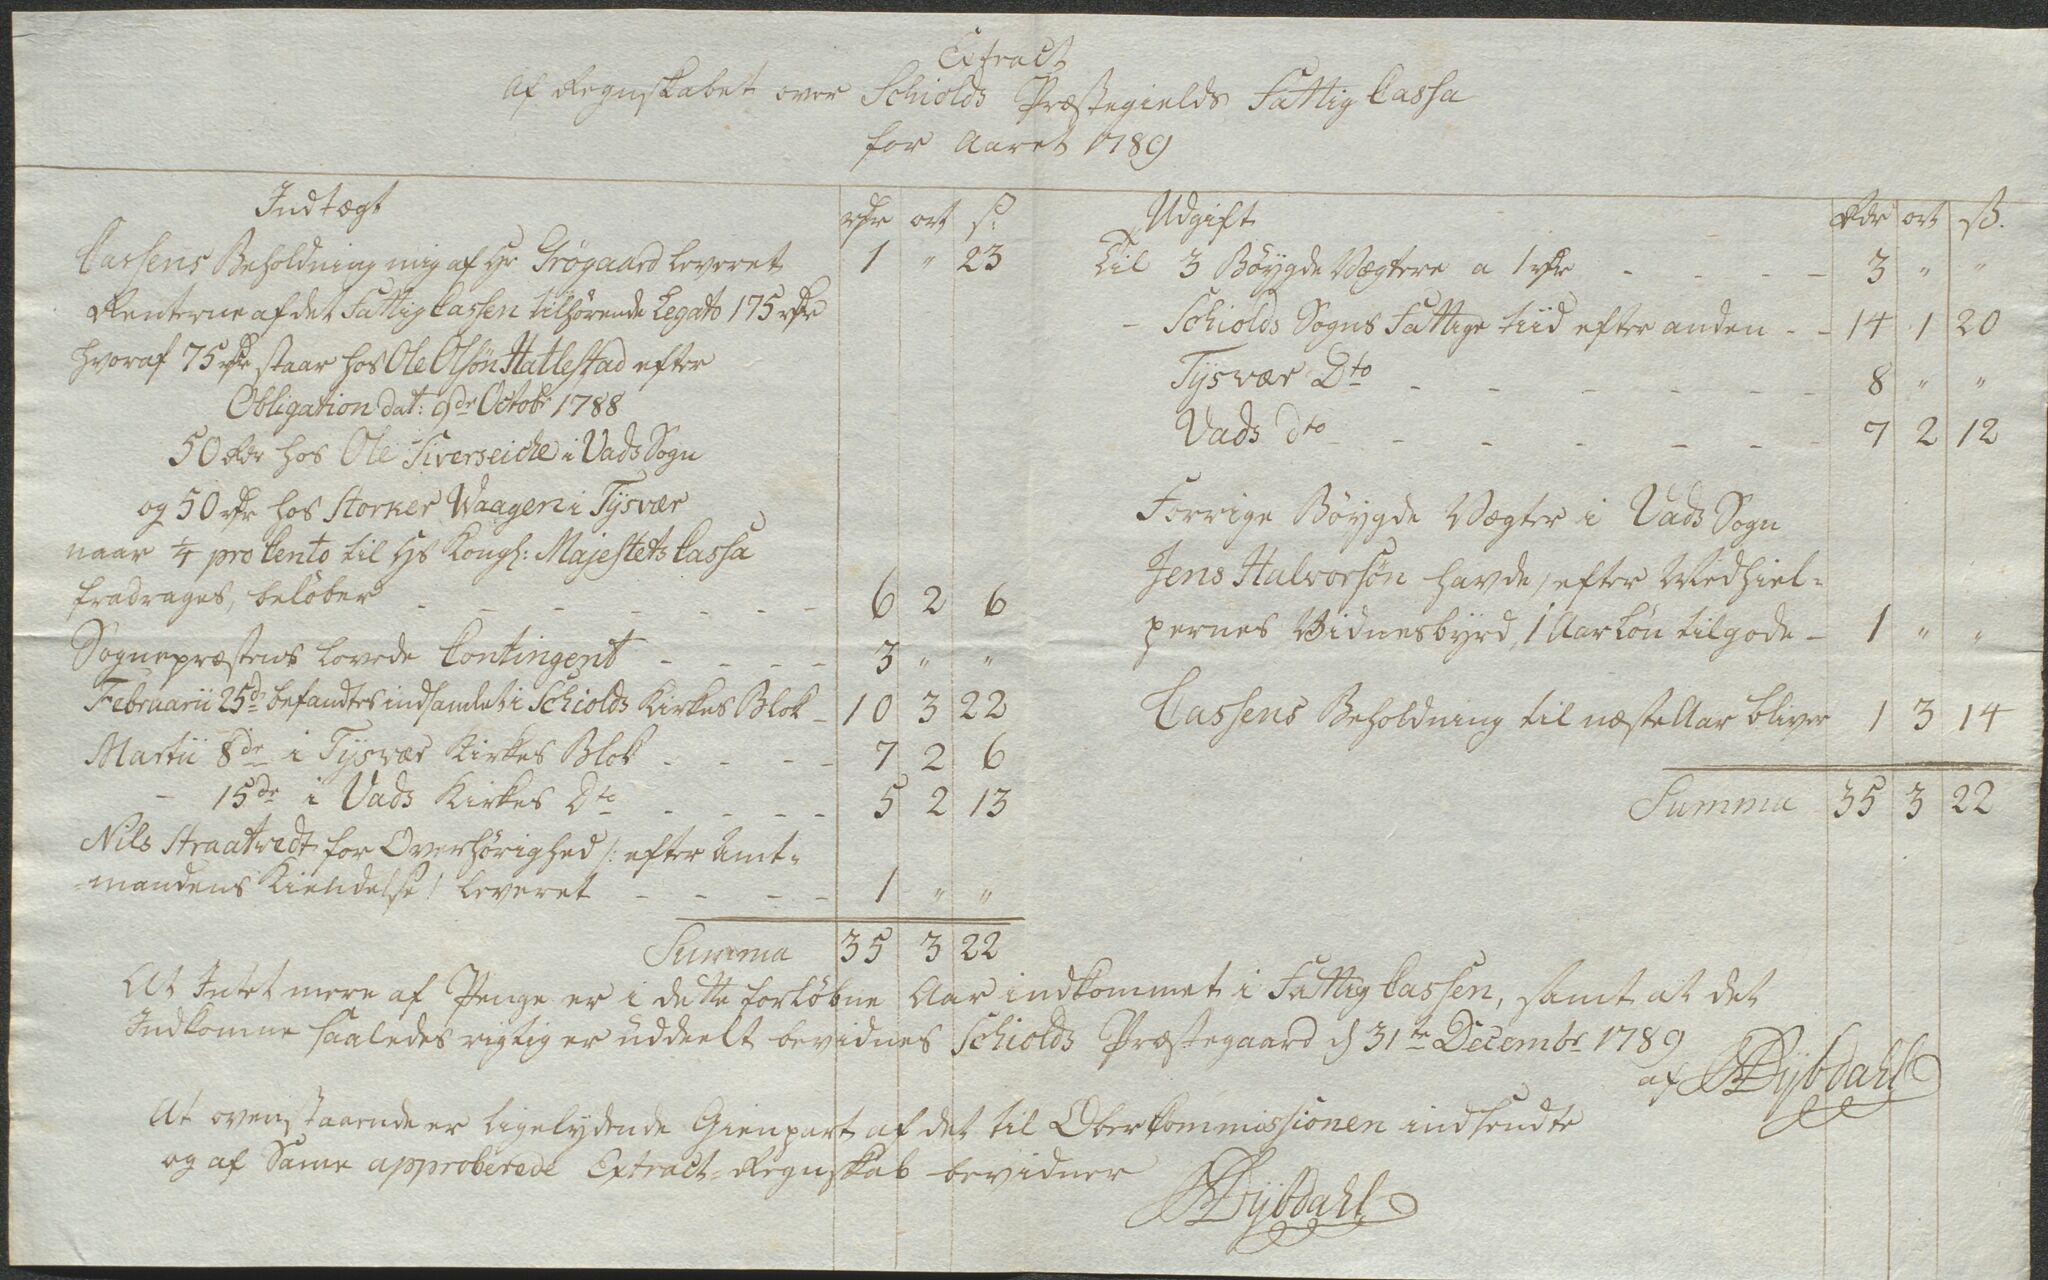 Extract
Af Regnskabet over Schiolds Præstegields Fattig Cassa
for Aaret 1789
Indtægt rdr ort s:
Cassens Beholdning mig af Hr Grøgaard leveret 1 " 23
Renterne af det Fattig Cassen tilhørende Legato 175 rdr
hvoraf 75 rdr staar hos Ole Olsøn Hatlestad efter
Obligation dat: 9de Octobr 1788
50 Rdr hos Ole Tiverseiche i Vads Sogn
og 50 rdr hos Storker Waagen i Tÿsvær
naar 1/4 pro Cento til Hs Kongl: Majestets Cassa
fradrages, beløber - - - - - - - 6 2 6
Sognepræstens lovede Contingent - - - - 3 " "
Februarii 25de befandtes indsamlet i Schiolds Kirkes Blok - 10 3 22
Martii 8de i Tÿsvær Kirkes Blok - - - - 7 2 6
- 15de i Vads Kirkes Dto - - - - 5 2 13
Nils Straatvedt for Overhørighed /: efter Amt=
=mandens Kiendelse / leveret - - - - 1 " "
Summa 35 3 22
Udgift Rdr ort ß.
Til 3 Böÿgde Vægtere a 1 rdr - - - - - 3 " "
- Schiolds Sogns Fattige tiid efter anden - - 14 1 20
Tÿsvær Dto - - - - - - 8 " "
Vads dto - - - - - - 7 2 12
Forrige Böÿgde Vægter i Vads Sogn
Jens Halvorsøn havde, efter Medhiel=
pernes Vidnesbÿrd, 1 Aar Løn tilgode - 1 " "
Cassens Beholdning til næste Aar bliver 1 3 14
Summa 35 3 22
At Intet mere af Penge er i dette forløbne Aar indkommet i Fattig Cassen, samt at det
Indkomne saaledes rigtig er uddeelt bevidnes Schiolds Præstegaard d 31te Decembr 1789
af Dÿbdahl
At ovenstaaende er ligelydende Gienpart af det til Ober Commissionen indsendte
og af Same approberede Extract-Regnskab bevidner
Dÿbdahl